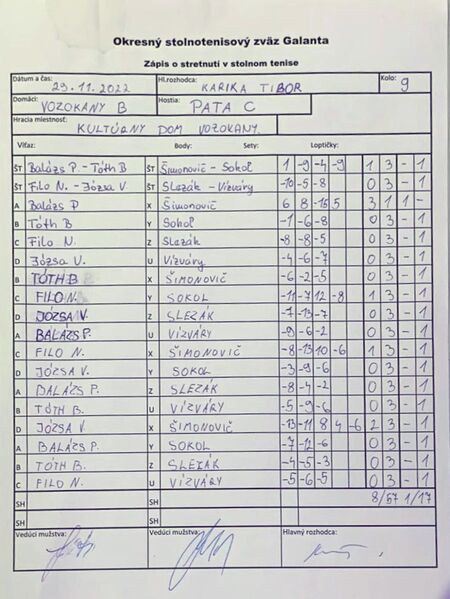 Okresný stolnotenisový zväz Galanta
Zápis o stretnutí v stolnom tenise
Dátum a čas: 29.11.2022 Hl.rozhodca: KARIKA TIBOR Kolo: 9
Domáci: VOZOKANY B Hostia: PATA C
Hracia miestnosť: KULTÚRNY DOM VOZOKANY.
Víťaz: Body: Sety: Loptičky:
ŠT Balázs P. - Tóth B ŠT Šimonovič - Sokol 1 -9 -4 -9 1 3 - 1
ŠT Filo N. - Józsa V. ŠT Slezák - Vízváry -10 -5 -8 0 3 - 1
A Balázs P X Šimonovič 6 8 -15 5 3 1 1 -
B Tóth B Y Sokol -1 -6 -8 0 3 - 1
C Filo N. Z Slezák -8 -8 -5 0 3 - 1
D Józsa V. U Vízváry -4 -6 -7 0 3 - 1
B TÓTH B X ŠIMONOVIČ -6 -2 -5 0 3 - 1
C FILO N. Y SOKOL -11 -7 12 -8 1 3 - 1
D JÓZSA V. Z SLEZÁK -7 -13 -7 0 3 - 1
A BALÁZS P. U VÍZVÁRY -9 -6 -2 0 3 - 1
C FILO N. X ŠIMONOVIČ -8 -13 10 -6 1 3 - 1
D JÓZSA V. Y SOKOL -3 -9 -6 0 3 - 1
A BALÁZS P. Z SLEZÁK -8 -4 -2 0 3 - 1
B TÓTH B. U VÍZVÁRY -5 -9 -6 0 3 - 1
D JÓZSA V. X ŠIMONOVIČ -13 -11 8 4 -6 2 3 - 1
A BALÁZS P. Y SOKOL -7 -12 -6 0 3 - 1
B TÓTH B. Z SLEZÁK -4 -5 -3 0 3 - 1
C FILO N. U VÍZVÁRY -5 -6 -5 0 3 - 1
SH SH 8/57 1/17
SH SH
Vedúci mužstva: Vedúci mužstva: Hlavný rozhodca: